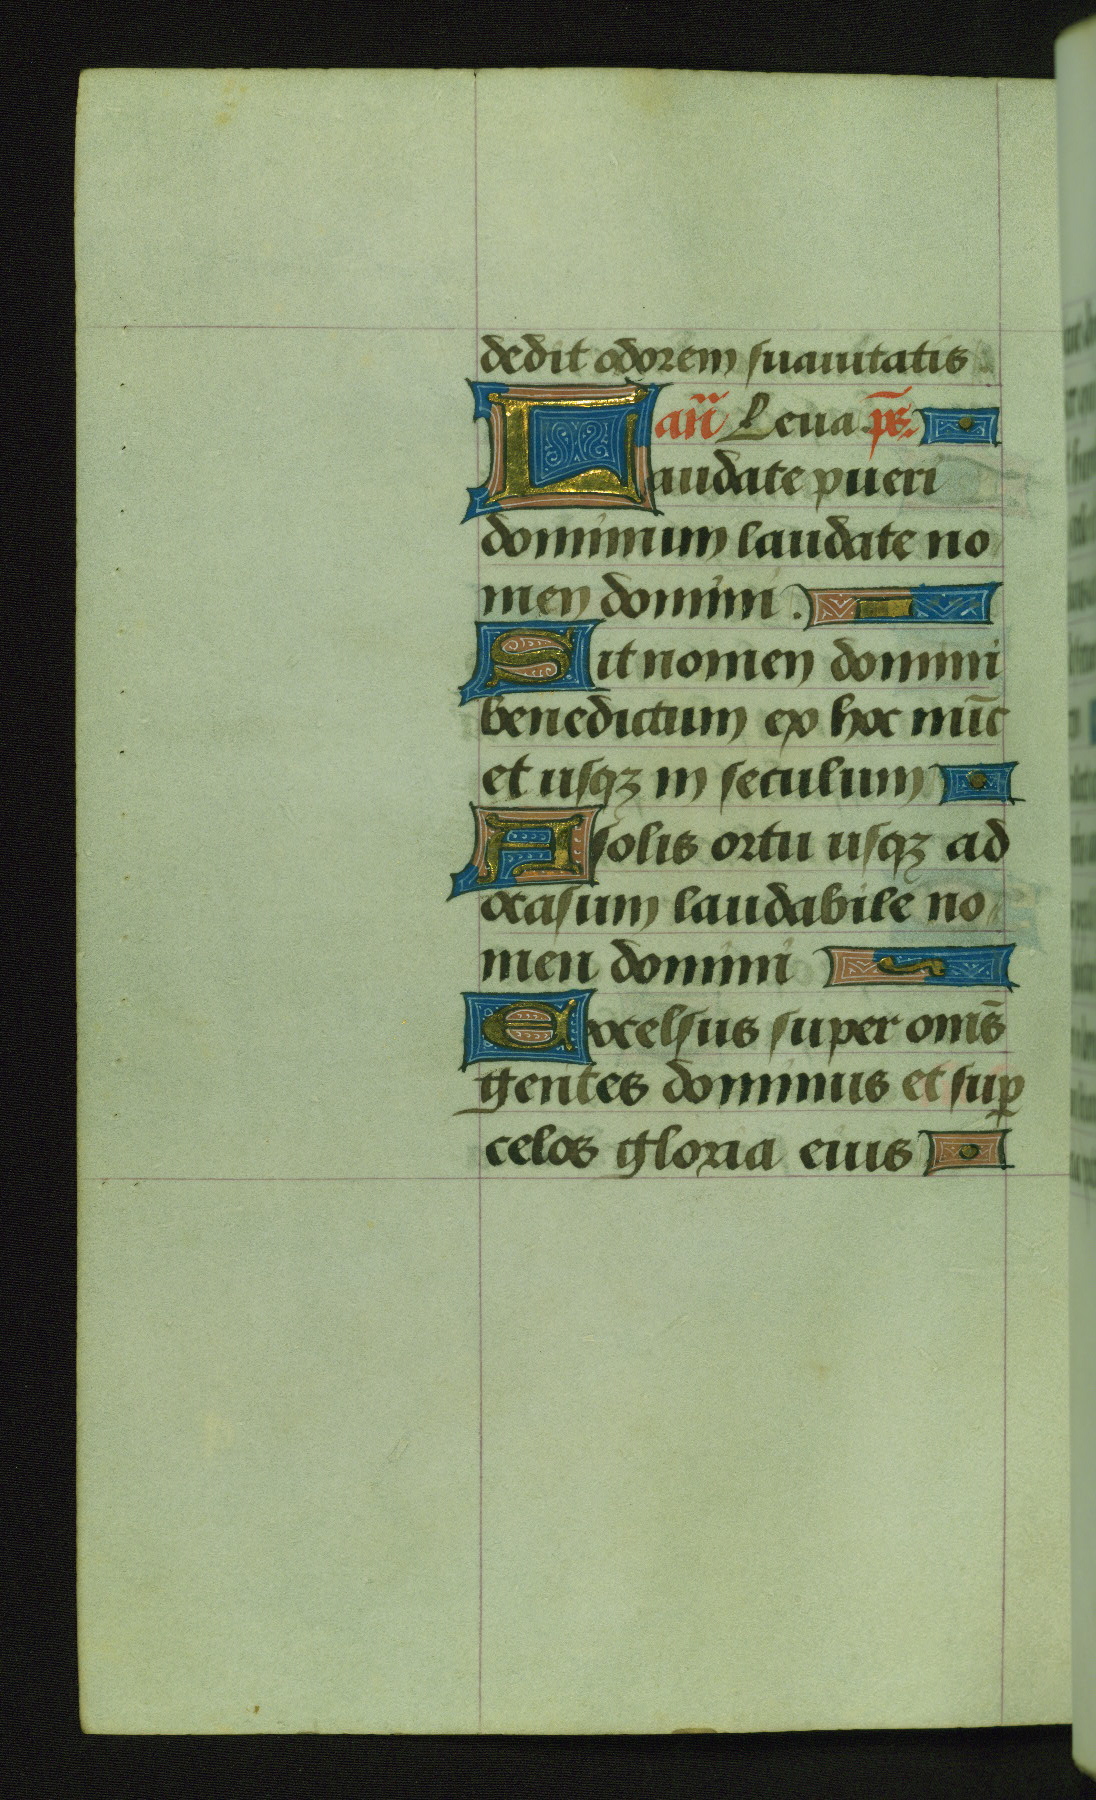 dedit odorem suauitatis
añ Leua p̄s.
Laudate pueri
dominum laudate no
men domini .
Sit nomen domini
benedictum ex hoc nūc
et usqꝫ in seculum
A solis ortu usqꝫ ad
occasum laudabile no
men domini
Excelsus super oms̄
gentes dominus et suꝑ
celos gloria eius